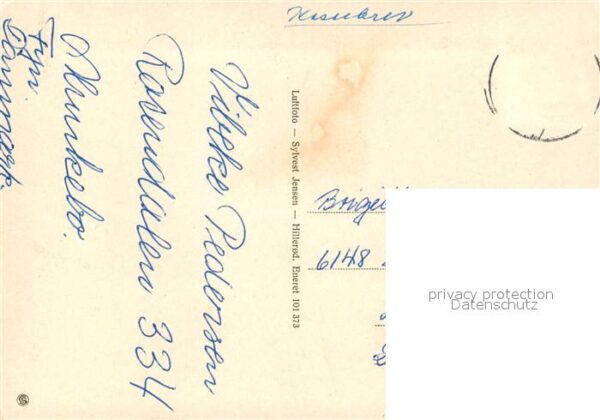 Vibeke Pedersen
Rosendalen 334
Munkebo.
Fyn.
Danmark.
Luftfoto — Sylvest Jensen — Hillerød. Eneret 101 373
6148
privacy protection
Datenschutz